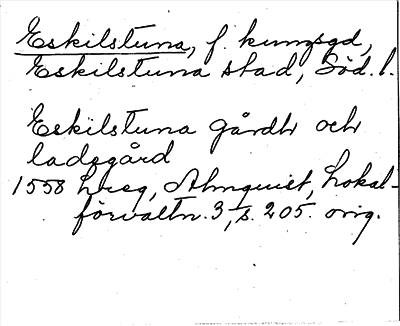 Eskilstuna, f. kungsgd,
Eskilstuna stad, Söd. l.
Eskilstuna gårdh och
ladegård
1558 Lreg, Almquist, Lokal-
förvaltn. 3, s. 205. orig.